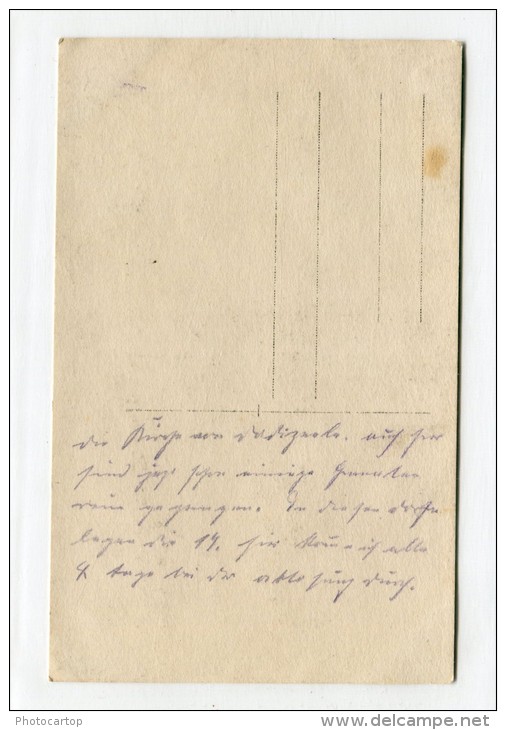 die Kirche von Dadizeele. auch hier
sind jezt schon einige Granaten
rein gegangen. In diesen Dorfe
liegen die 19. hier komme ich alle
4 tage bei der ablösung durch.
Photocartop
www.delcampe.net